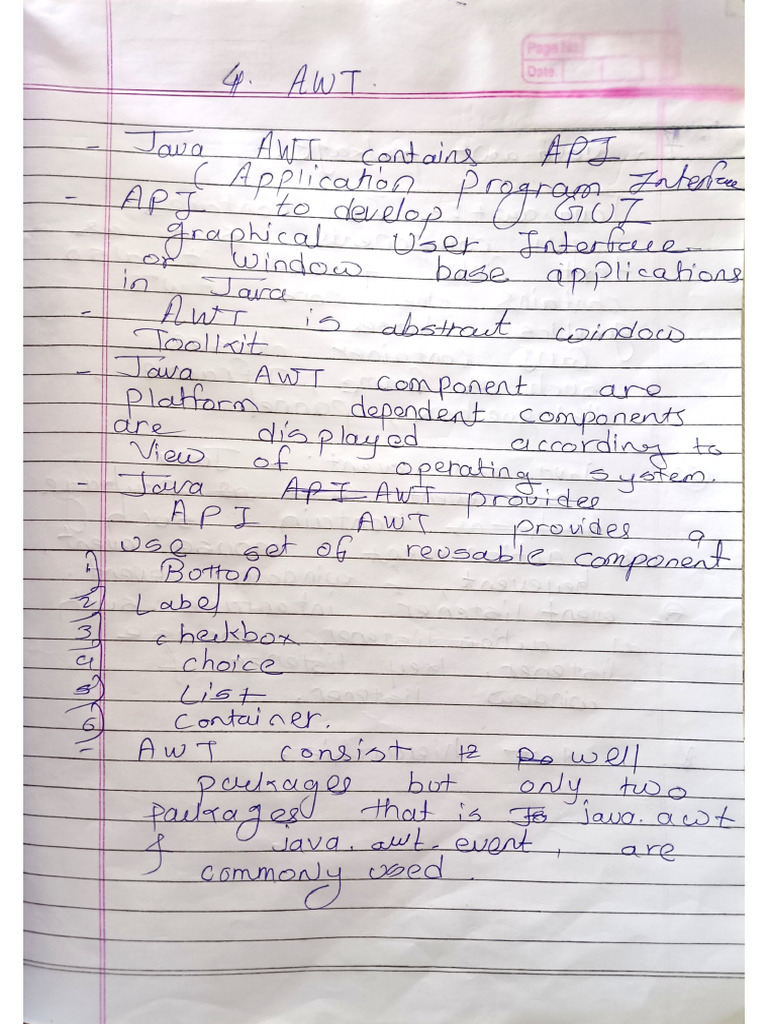 Page No.
Date.
4. AWT.
- Java AWT contains API
(Application Program Interface
- API to develop GUI
graphical User Interface
or window base applications
in Java
- AWT is abstract window
Toolkit
- Java AWT component are
platform dependent components
are displayed according to
View of operating system.
- Java API AWT provides
API AWT provides a
use set of reusable component
1) Botton
2) Label
3) checkbox
4) choice
5) List
6) Container.
- AWT consist 12 Po well
packages but only two
packages that is To java.awt
& java.awt.event, are
commonly used.